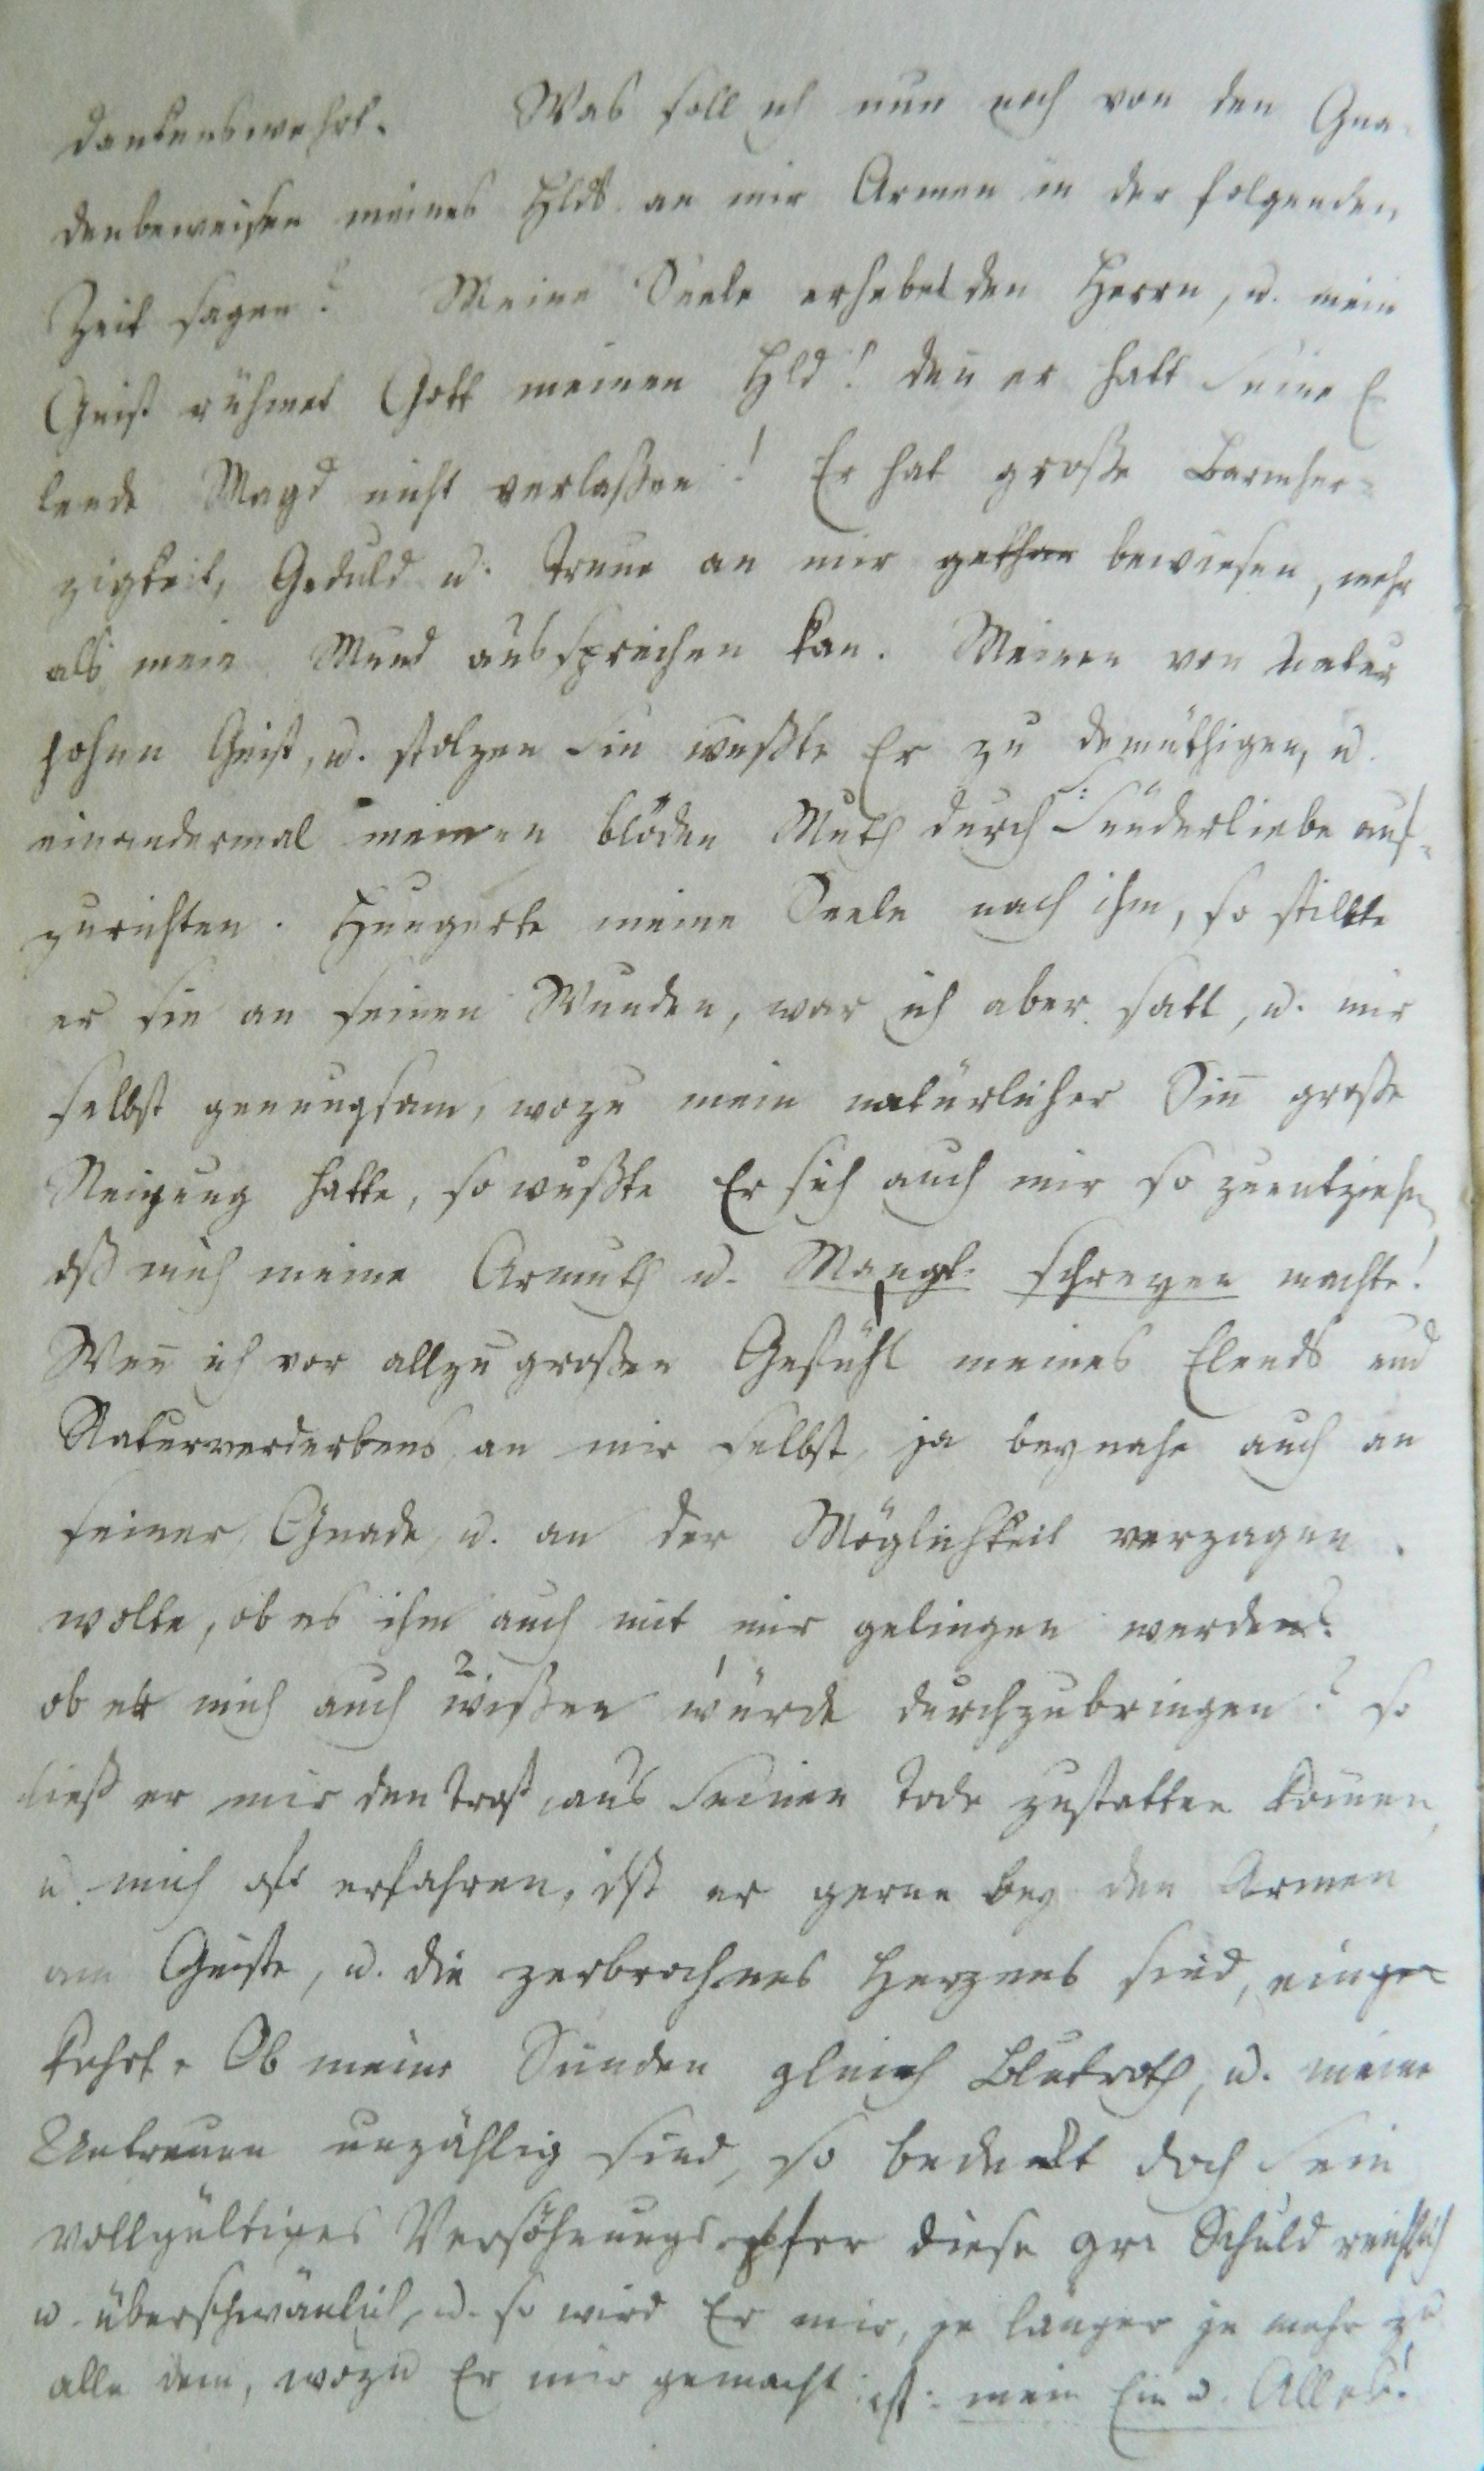 dankenswehrt. Was soll ich nun noch von den Gna-
denbeweisen meines Hlds an mir Armen in der folgenden
Zeit sagen? Meine Seele erhebet den Herrn, u. mein
Geist rühmet Gott meinen Hld! deñ er hatt seine E
lende Magd nicht verlaßen! Er hat große Barmher-
zigkeit, Geduld u. Treue an mir gethan bewiesen, mehr
als mein Mund aussprechen kan. Meinen von Natur
hohen Geist, u. stolzen Siñ wußte Er zu demüthigen, u.
einandermal meinen blöden Muth durch Sünderliebe auf-
zurichten. Hungerte meine Seele nach ihm, so stillte
er sie an seinen Wunden, war ich aber satt, u. mir
selbst genungsam, wozu mein natürlicher Siñ große
Neigung hatte, so wußte Er sich auch mir so zuentziehn,
dß mich meine Armuth u. Mangl. schreyen machte!
Weñ ich vor allzu großen Gefühl meines Elends und
Naturverderbens an mir selbst, ja beynahe auch an
seiner Gnade u. an der Möglichkeit verzagen
wolte, ob es ihm auch mit mir gelingen werde?
ob er mich auch wißen würde durchzubringen? so
ließ er mir den Trost aus seinen Tode zustatten kom̃en,
u. mich oft erfahren, dß er gerne bey den Armen
am Geiste, u. die zerbrochnes Herzens sind, einge-
kehrt. Ob meine Sünden gleich Blutroth, u. meine
Untreuen unzählig sind, so bedeckt doch sein
vollgültiges Versöhnungsopfer diese gr. Schuld reichlich
u. überschwänlich, u. so wird Er mir, je länger je mehr zu
alle dem, wozu Er mir gemacht ist: mein Ein u. Alles!